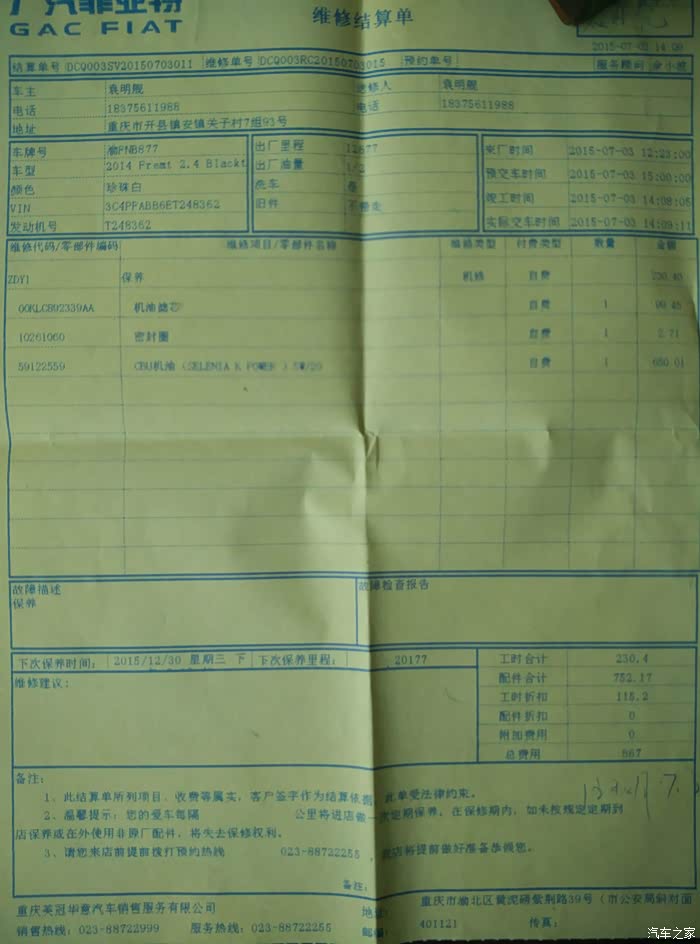 广汽菲亚特
GAC FIAT
维修结算单
2015-07-03 14:09
结算单号 DCQ003SV20150703011 维修单号 DCQ003RC20150703015 预约单号 服务顾问
车主 袁明舰 送修人 袁明舰
电话 18375611988 电话 18375611988
地址 重庆市开县镇安镇关子村7组93号
车牌号 渝FNB877 出厂里程 12677 来厂时间 2015-07-03 12:23:00
车型 2014 Fremt 2.4 Blackt 出厂油量 1/2 预交车时间 2015-07-03 15:00:00
颜色 珍珠白 洗车 是 竣工时间 2015-07-03 14:08:05
VIN 3C4PFABB6ET248362 旧件 不带走
发动机号 T248362 实际交车时间 2015-07-03 14:09:11
维修代码/零部件编码 维修项目/零部件名称 维修类型 付费类型 数量 金额
ZDY1 保养 机修 自费 230.40
00KLCB92339AA 机油滤芯 自费 1 99.45
10261060 密封圈 自费 1 2.71
59122559 CBU机油（SELENIA K POWER ）5W/20 自费 1 650.01
故障描述 故障检查报告
保养
下次保养时间: 2015/12/30 星期三 下 下次保养里程: 20177 工时合计 230.4
维修建议: 配件合计 752.17
工时折扣 115.2
配件折扣 0
附加费用 0
总费用 867
备注:
1、此结算单所列项目、收费等属实，客户签字作为结算依据，此单受法律约束。
2、温馨提示：您的爱车每隔 公里将进店做一次定期保养，在保修期内，如未按规定定期到
店保养或在外使用非原厂配件，将失去保修权利。
3、请您来店前提前拨打预约热线 023-88722255 ，我店将提前做好准备恭候您。
备注:
重庆英冠华意汽车销售服务有限公司 地址: 重庆市渝北区黄泥磅紫荆路39号（市公安局斜对面
销售热线: 023-88722999 服务热线: 023-88722255 邮编: 401121 传真:
汽车之家